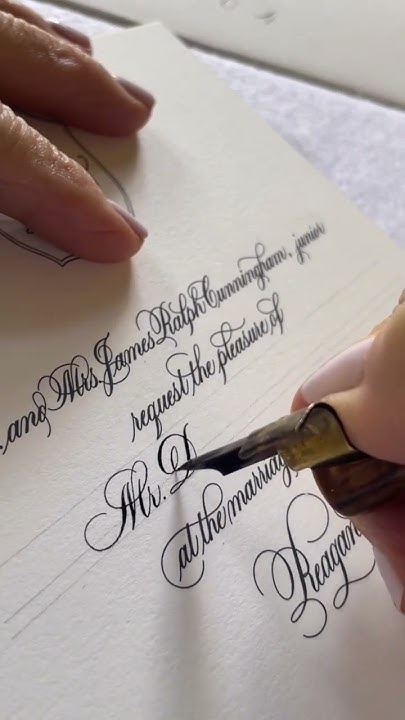 . and Mrs. James Ralph Cunningham, junior
request the pleasure of
Mr. D
at the marriag
Reagan